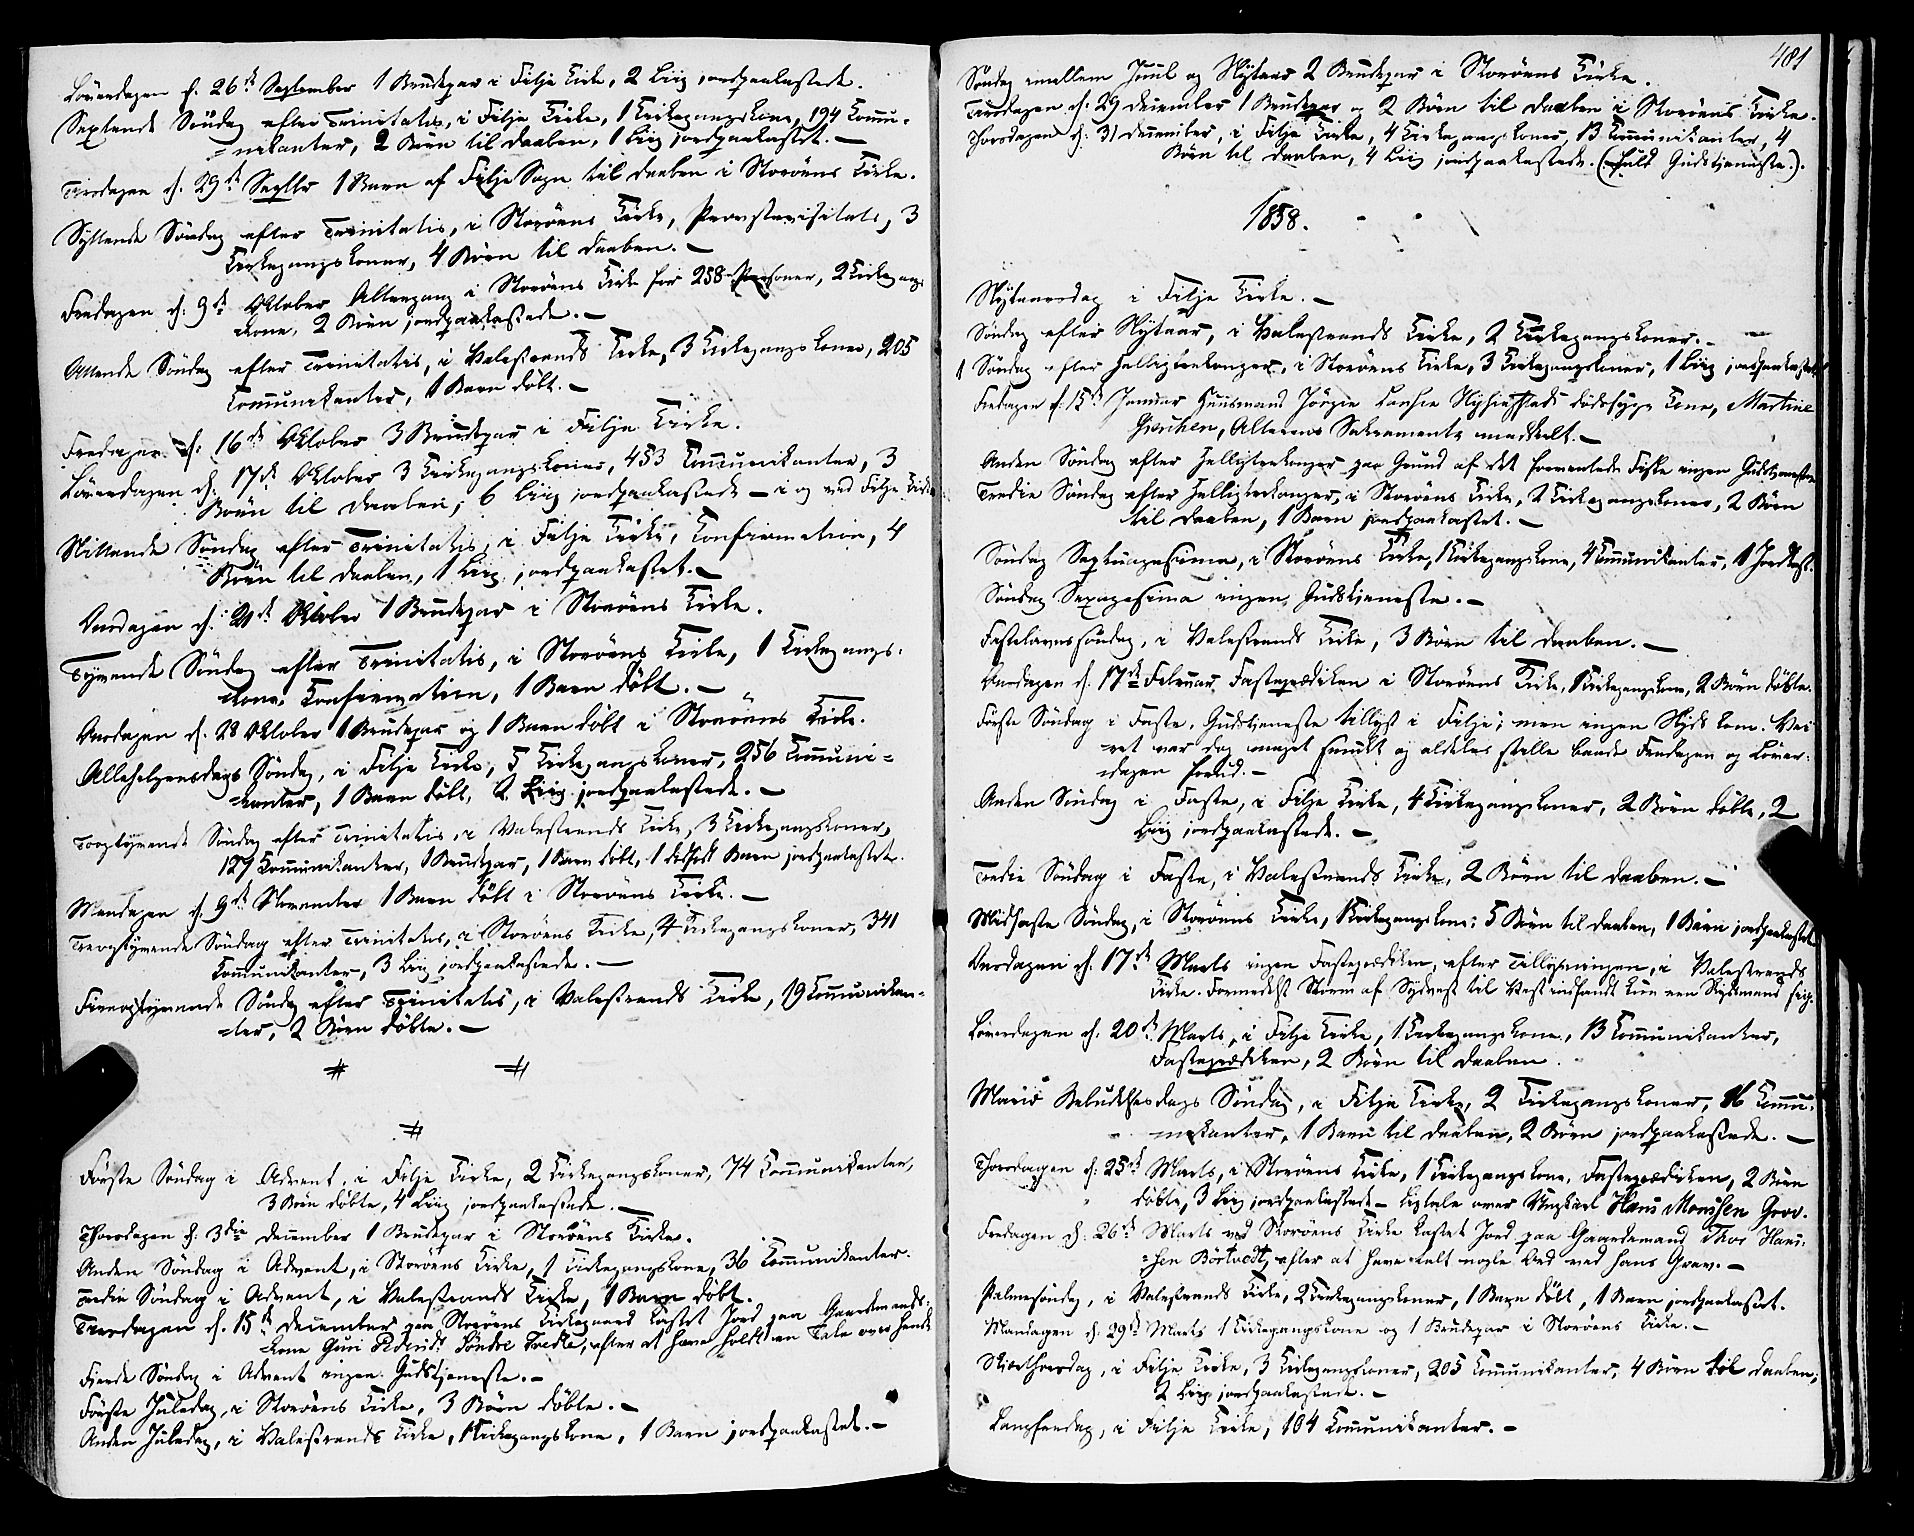 Løverdagen d. 26de September 1 Brudepar i Fitje Kirke, 2 Liig jordpaakastede.
Sextende Söndag efter Trinitatis, i Fitje Kirke, 1 Kirkegangskone, 194 Commu-
=nikanter, 2 Börn til Daaben, 1 Liig jordpaakastet. —
Tirsdagen d. 29de Septbr 1 Barn af Fitje Sogn til Daaben i Storöens Kirke.
Syttende Söndag efter Trinitatis, i Storöens Kirke, Provstevisitats, 3
Kirkegangskoner, 4 Börn til Daaben. —
Fredagen d. 9de Oktober Altergang i Storöens Kirke for 258 Personer, 2 Kirkegang-
skone, 2 Börn jordpaakastede. —
Attende Söndag efter Trinitatis, i Valestrands Kirke, 3 Kirkegangskoner, 205
Communikanter, 1 Barn döbt. —
Fredagen d. 16de Oktober 3 Brudepar i Fitje Kirke.
Löverdagen d. 17de Oktober 3 Kirkegangskoner, 453 Communikanter, 3
Börn til Daaben, 6 Liig jordpaakastede — i og ved Fitje Kirke
Nittende Söndag efter Trinitatis, i Fitje Kirke, Confirmation, 4
Börn til Daaben, 1 Liig jordpaakastet. —
Onsdagen d. 21de Oktober 1 Brudepar i Storöens Kirke.
Tyvende Söndag efter Trinitatis, i Storöens Kirke, 1 Kirkegangs-
kone, Confirmation, 1 Barn döbt. —
Onsdagen d. 28 Oktober 1 Brudepar og 1 Barn döbt i Storöens Kirke.
Allehelgensdags Söndag, i Fitje Kirke, 5 Kirkegangskoner, 256 Communi=
=kanter, 1 Barn döbt, 2 Liig jordpaakastede. —
Toogtyvende Söndag efter Trinitatis, i Valestrands Kirke, 3 Kirkegangskoner,
127 Communikanter, 1 Brudepar, 1 Barn döbt, 1 dödfödt Barn jordpaakastet.
Mandagen d. 9de November 1 Barn döbt i Storöens Kirke. —
Treogtyvende Söndag efter Trinitatis, i Storöens Kirke, 4 Kirkegangskoner, 341
Communikanter, 3 Liig jordpaakastede. —
Fireogtyvende Söndag efter Trinitatis, i Valestrands Kirke, 19 Communikan=
=ter, 2 Börn döbte. —
# #
#
Förste Söndag i Advent, i Fitje Kirke, 2 Kirkegangskoner, 74 Communikanter,
3 Börn döbte, 4 Liig jordpaakastede. —
Thorsdagen d. 3die December 1 Brudepar i Storöens Kirke.
Anden Söndag i Advent, i Storöens Kirke, 1 Kirkegangskone, 36 Communikanter.
Tredie Söndag i Advent, i Valestrands Kirke, 1 Barn döbt.
Tirsdagen d. 15de December paa Storöens Kirkegaard kastet Jord paa Gaardmands-
kone Guri Pedersdt Söndre Tvedte, efter at have holdt en Tale over hende
Fjerde Söndag i Advent ingen Gudstjeneste. —
Förste Juledag, i Storöens Kirke, 3 Börn döbte. —
Anden Juledag, i Valestrands Kirke, 1 Kirkegangskone, 1 Barn jordpaakastet. —
481
Söndag mellem Juul og Nytaar 2 Brudepar i Storöens Kirke.
Tirsdagen d. 29 December 1 Brudepar og 2 Börn til Daaben i Storöens Kirke.
Thorsdagen d. 31 December, i Fitje Kirke, 4 Kirkegangskoner, 13 Communikanter, 4
Börn til Daaben, 4 Liig jordpaakastede. (Fuld Gudstjeneste.).
1858.
Nytaarsdag i Fitje Kirke. —
Söndag efter Nytaar, i Valestrands Kirke, 2 Kirkegangskoner. —
1 Söndag efter Helligtrekonger, i Storöens Kirke, 3 Kirkegangskoner, 1 Liig jordpaakastet
Fredagen d. 15de Januar Huusmand dödssyge Kone, Martine
Alterens Sakramente meddeelt. —
Anden Söndag efter Helligtrekonger paa Grund af det forventede Fiske ingen Gudstjeneste
Tredie Söndag efter Helligtrekonger, i Storöens Kirke, 2 Kirkegangskoner, 2 Börn
til Daaben, 1 Barn jordpaakastet. —
Söndag Septuagesima, i Storöens Kirke, 1 Kirkegangskone, 4 Communikanter, 1 Jordkast.
Söndag Sexagesima ingen Gudstjeneste. —
Fastelavnssöndag, i Valestrands Kirke, 3 Börn til Daaben. —
Onsdagen d. 17de Februar Fasteprædiken i Storöens Kirke, 1 Kirkegangskone, 2 Börn döbte.
Förste Söndag i Faste, Gudstjeneste tillyst i Fitje; men ingen Skyds kom. Vei-
=ret var dog meget smukt og aldeles stille baade Fredagen og Löver-
=dagen forud. —
Anden Söndag i Faste, i Fitje Kirke, 4 Kirkegangskoner, 2 Börn döbte, 2
Liig jordpaakastede. —
Tredie Söndag i Faste, i Valestrands Kirke, 2 Börn til Daaben. —
Midfaste Söndag, i Storöens Kirke, 1 Kirkegangskone, 5 Börn til Daaben, 1 Barn jordpaakastet
Onsdagen d. 17de Marts ingen Fasteprædiken, efter Tillysningen, i Valestrands
Kirke. Formedelst Storm af Sydvest til Vest indfandt kun een Skydsmand sig.
Löverdagen d. 20de Marts, i Fitje Kirke, 1 Kirkegangskone, 13 Communikanter,
Fasteprædiken, 2 Börn til Daaben.
Mariæ Bebudelsesdags Söndag, i Fitje Kirke, 2 Kirkegangskoner, 16 Commu-
=nikanter, 1 Barn til Daaben, 2 Börn jordpaakastede. —
Thorsdagen d. 25de Marts, i Storöens Kirke, 1 Kirkegangskone, Fasteprædiken, 2 Börn
döbte, 3 Liig jordpaakastede — Ligtale over Ungkarl Hans Monssen Grov.
Fredagen d. 26de Marts ved Storöens Kirke kastet Jord paa Gaardmand Thor Hans-
=sen Börtvedt, efter at have talt nogle Ord ved hans Grav. —
Palmesöndag, i Valestrands Kirke, 2 Kirkegangskoner, 1 Barn döbt, 1 Barn jordpaakastet.
Mandagen d. 29de Marts 1 Kirkegangskone og 1 Brudepar i Storöens Kirke. —
Skjærthorsdag, i Fitje Kirke, 3 Kirkegangskoner, 205 Communikanter, 4 Börn til Daaben,
2 Liig jordpaakastede. —
Langfredag, i Fitje Kirke, 104 Communikanter. —